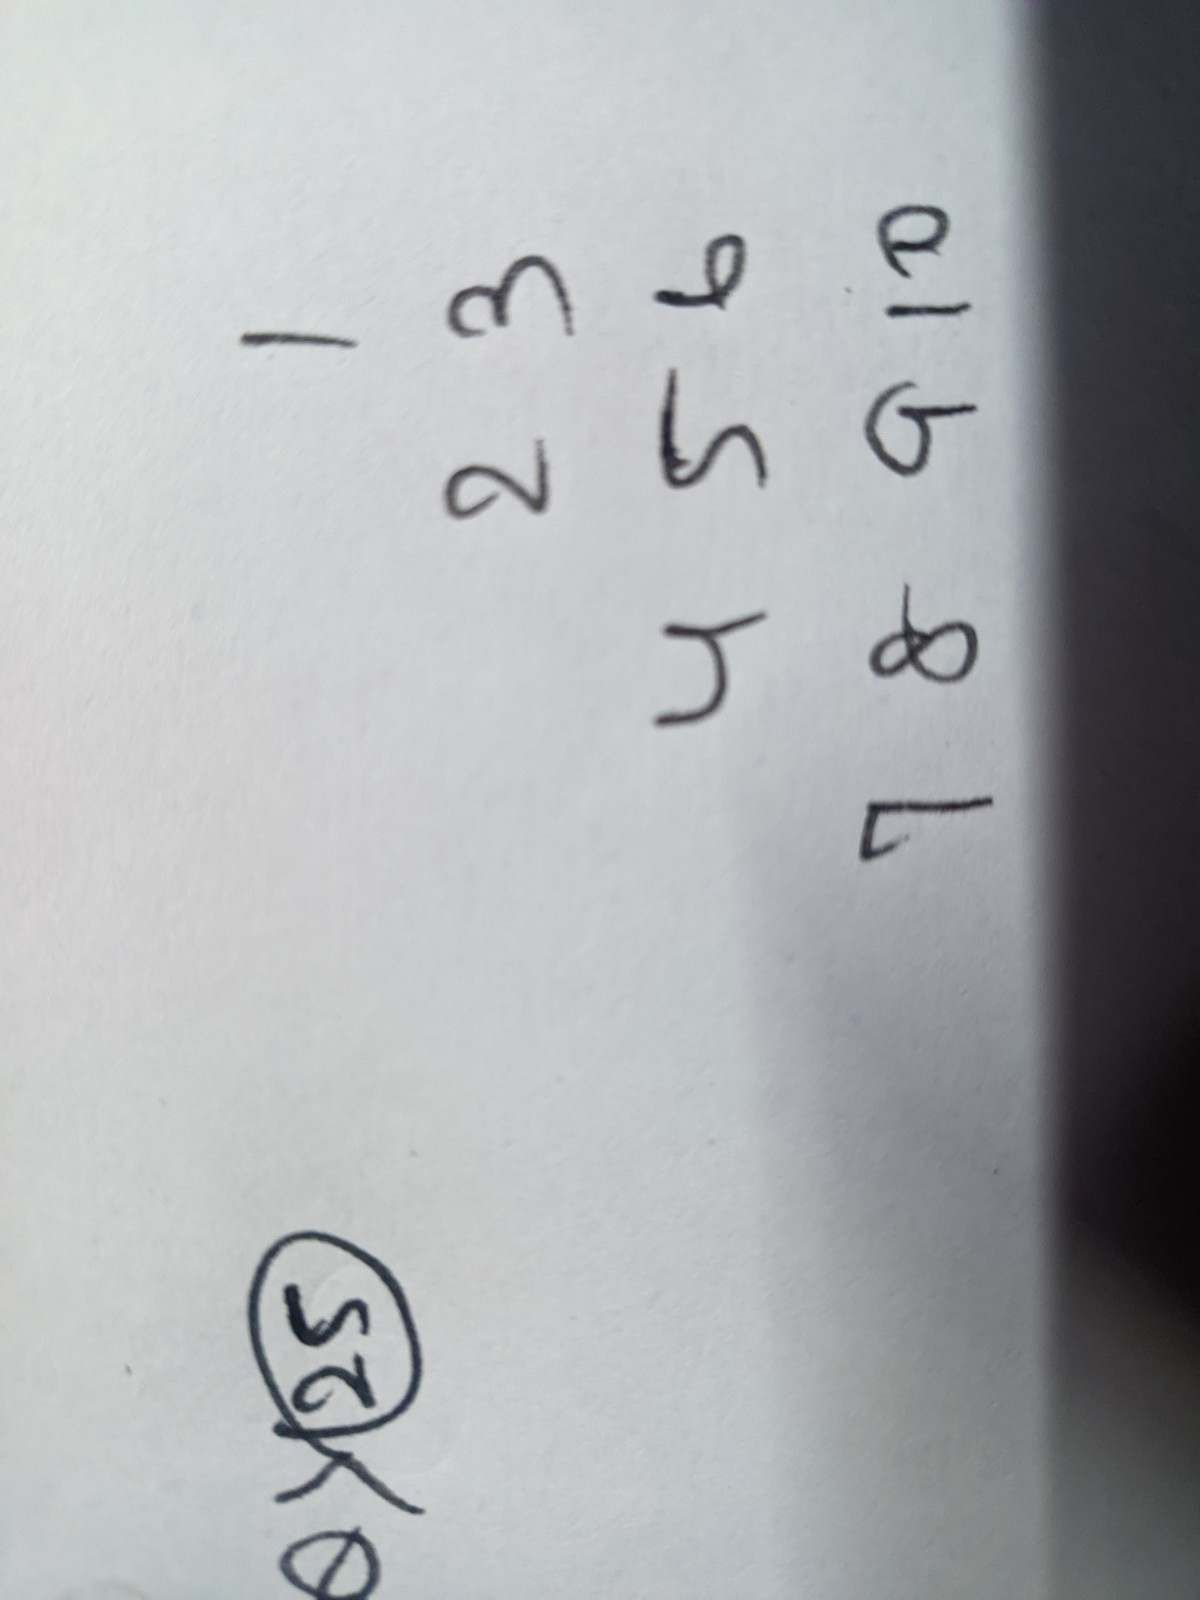 Q) 25
1
2 3
4 5 6
7 8 9 10